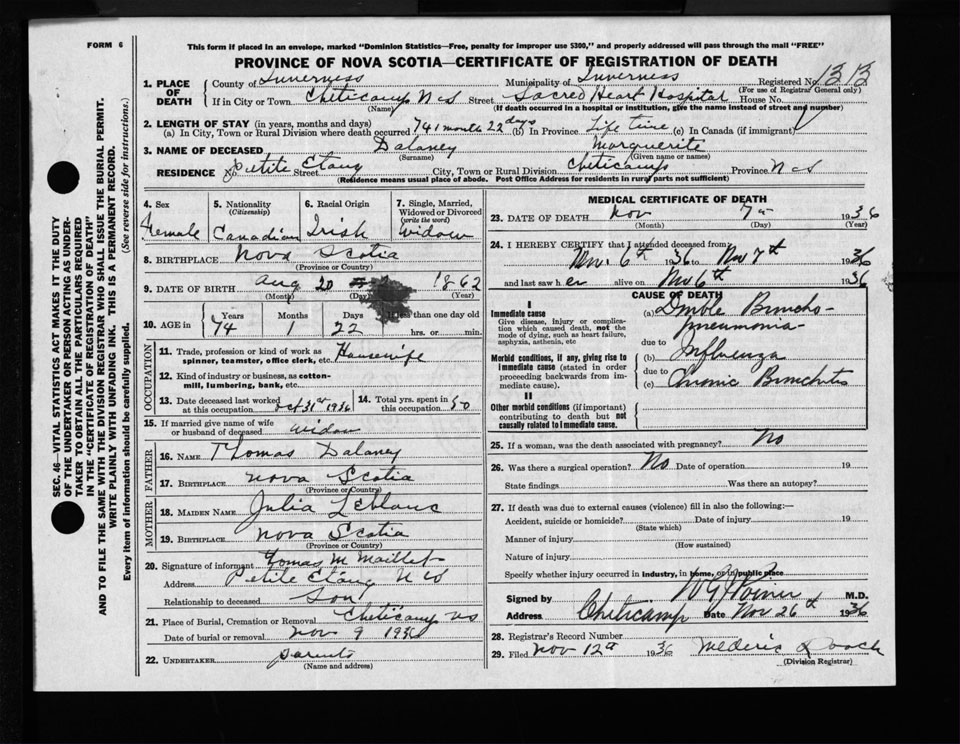 FORM 6
This form if placed in an envelope, marked "Dominion Statistics—Free, penalty for improper use $300," and properly addressed will pass through the mail "FREE"
PROVINCE OF NOVA SCOTIA—CERTIFICATE OF REGISTRATION OF DEATH
SEC. 46—VITAL STATISTICS ACT MAKES IT THE DUTY
OF THE UNDERTAKER OR PERSON ACTING AS UNDER-
TAKER TO OBTAIN ALL THE PARTICULARS REQUIRED
IN THE "CERTIFICATE OF REGISTRATION OF DEATH"
AND TO FILE THE SAME WITH THE DIVISION REGISTRAR WHO SHALL ISSUE THE BURIAL PERMIT.
WRITE PLAINLY WITH UNFADING INK. THIS IS A PERMANENT RECORD.
Every item of information should be carefully supplied. (See reverse side for instructions.)
1. PLACE OF DEATH
County of Inverness Municipality of Inverness Registered No. 1313
(For use of Registrar General only)
If in City or Town Cheticamp N S Street Sacred Heart Hospital House No.
(Name) (If death occurred in a hospital or institution, give the name instead of street and number)
2. LENGTH OF STAY (in years, months and days)
(a) In City, Town or Rural Division where death occurred 74 1 month 22 days (b) In Province Life time (c) In Canada (if immigrant)
3. NAME OF DECEASED Dalaney Marguerite
(Surname) (Given name or names)
RESIDENCE No. Petite Etang Street City, Town or Rural Division Cheticamp Province N S
(Residence means usual place of abode. Post Office Address for residents in rural parts not sufficient)
4. Sex Female
5. Nationality (Citizenship) Canadian
6. Racial Origin Irish
7. Single, Married, Widowed or Divorced (write the word) Widow
8. BIRTHPLACE Nova Scotia
(Province or Country)
9. DATE OF BIRTH Aug 20 1862
(Month) (Day) (Year)
10. AGE in Years 74 Months 1 Days 22 If less than one day old hrs. or min.
OCCUPATION
11. Trade, profession or kind of work as spinner, teamster, office clerk, etc. Housewife
12. Kind of industry or business, as cotton-mill, lumbering, bank, etc.
13. Date deceased last worked at this occupation Oct 31st 1936
14. Total yrs. spent in this occupation 50
15. If married give name of wife or husband of deceased widow
FATHER
16. NAME Thomas Dalaney
17. BIRTHPLACE Nova Scotia
(Province or Country)
MOTHER
18. MAIDEN NAME Julia Leblanc
19. BIRTHPLACE Nova Scotia
(Province or Country)
20. Signature of informant Thomas M Maillet
Address Petite Etang N S
Relationship to deceased Son
21. Place of Burial, Cremation or Removal Cheticamp NS
Date of burial or removal Nov 9 1936
22. UNDERTAKER parents
(Name and address)
MEDICAL CERTIFICATE OF DEATH
23. DATE OF DEATH Nov 7th 1936
(Month) (Day) (Year)
24. I HEREBY CERTIFY that I attended deceased from
Nov. 6th 1936 to Nov 7th 1936
and last saw her alive on Nov 6th 1936
CAUSE OF DEATH
I
Immediate cause
Give disease, injury or complication which caused death, not the mode of dying, such as heart failure, asphyxia, asthenia, etc
(a) Double Broncho-
pneumonia
due to
Morbid conditions, if any, giving rise to immediate cause (stated in order proceeding backwards from immediate cause).
(b) Influenza
due to
(c) Chronic Bronchitis
II
Other morbid conditions (if important) contributing to death but not causally related to immediate cause.
25. If a woman, was the death associated with pregnancy? No
26. Was there a surgical operation? No Date of operation 19
State findings Was there an autopsy?
27. If death was due to external causes (violence) fill in also the following:—
Accident, suicide or homicide? Date of injury 19
(State which)
Manner of injury
(How sustained)
Nature of injury
Specify whether injury occurred in industry, in home, or in public place
Signed by M.D.
Address Cheticamp Date Nov 26th 1936
28. Registrar's Record Number
29. Filed Nov 12th 1936 Mederic
(Division Registrar)